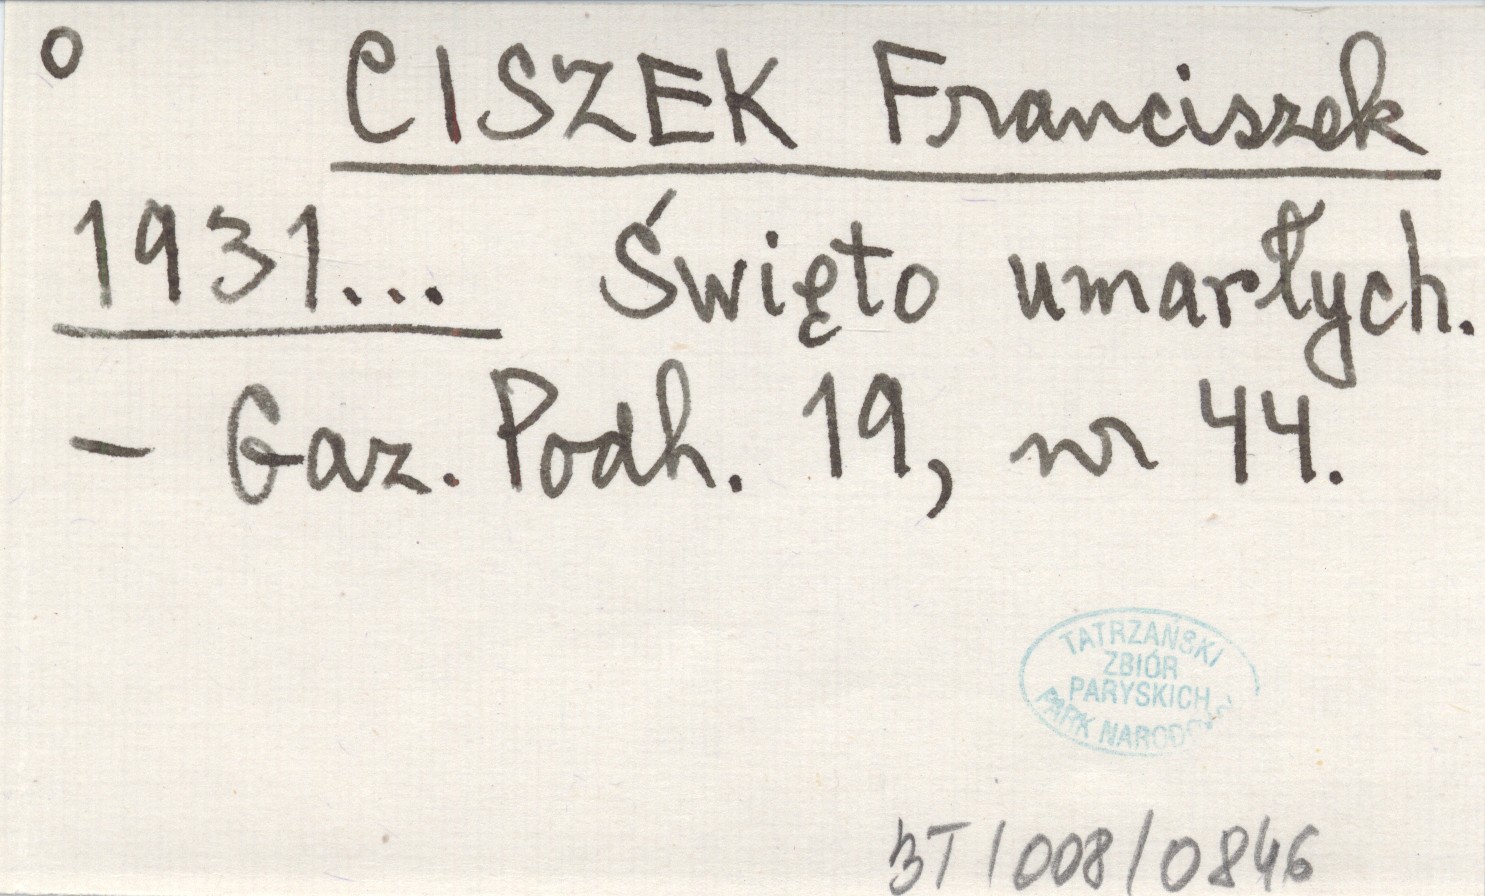 o CISZEK Franciszek
1931... Święto umarłych.
- Gaz. Podh. 19, nr 44.
TATRZAŃSKI
ZBIÓR
PARYSKICH
PARK NARODOWY
BT/008/0846